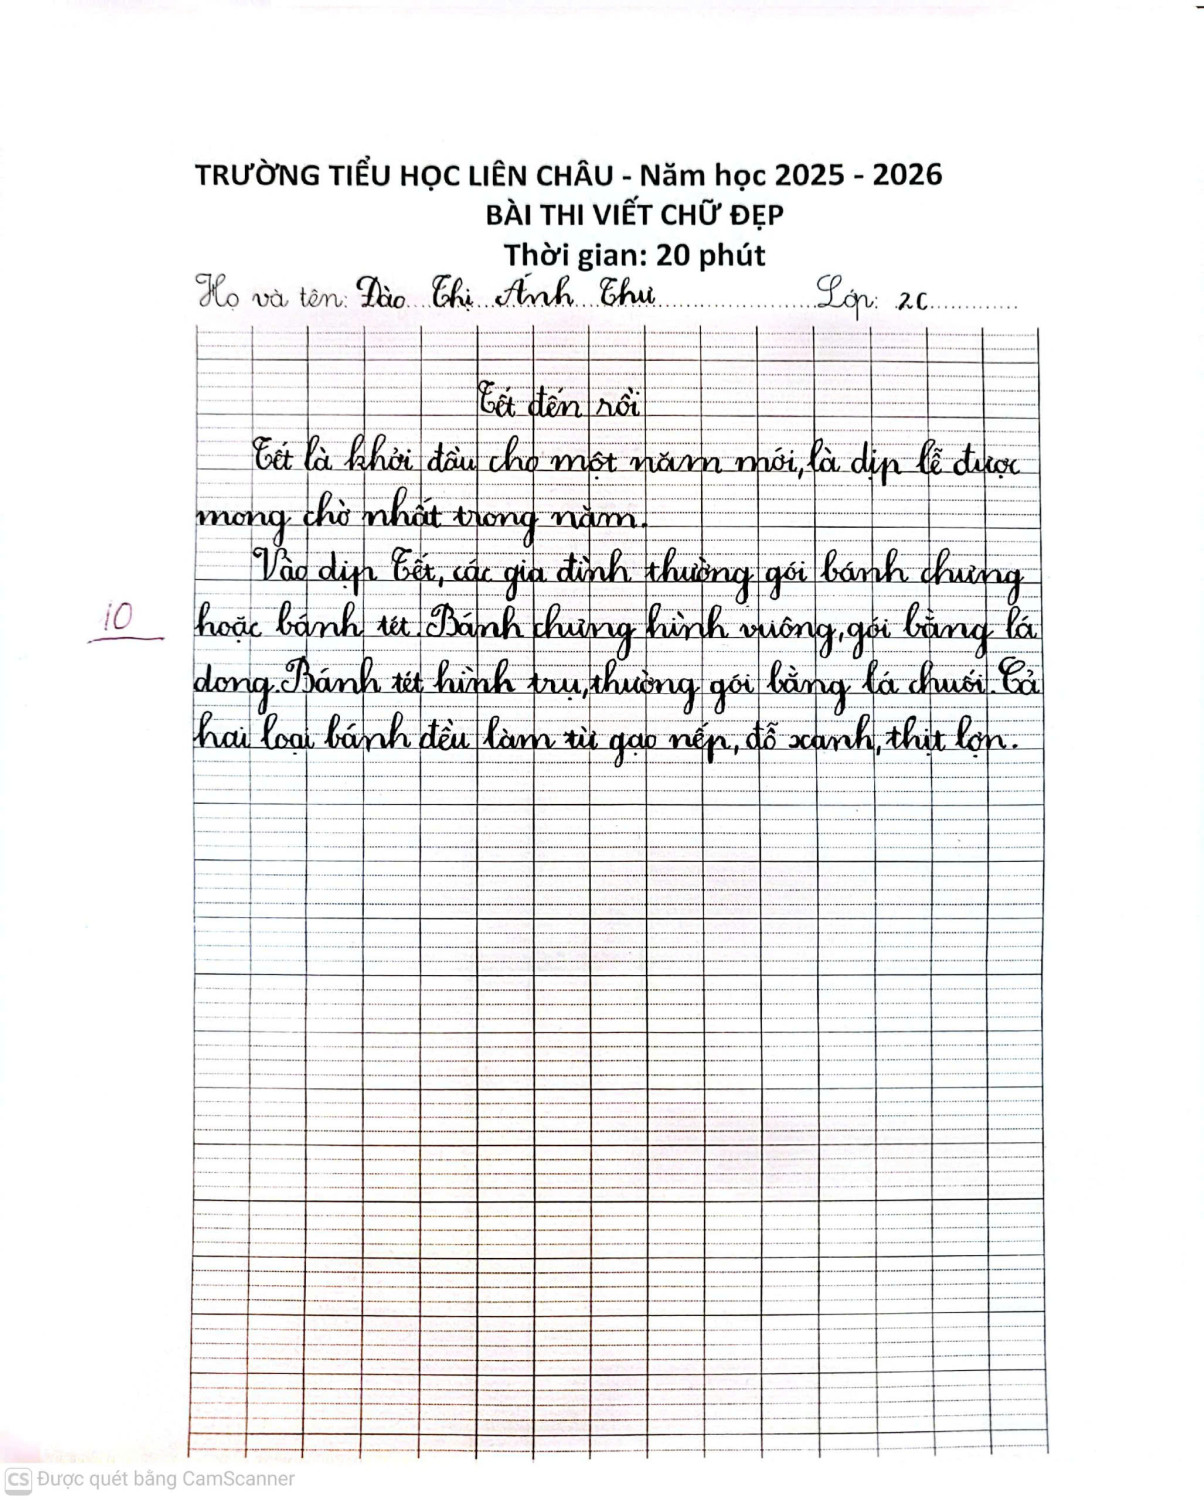 TRƯỜNG TIỂU HỌC LIÊN CHÂU - Năm học 2025 - 2026
BÀI THI VIẾT CHỮ ĐẸP
Thời gian: 20 phút
Họ và tên: Đào Thị Ánh Thư Lớp: 2C
Tết đến rồi
Tết là khởi đầu cho một năm mới, là dịp lễ được
mong chờ nhất trong năm.
Vào dịp Tết, các gia đình thường gói bánh chưng
10
hoặc bánh tét. Bánh chưng hình vuông, gói bằng lá
dong. Bánh tét hình trụ, thường gói bằng lá chuối. Cả
hai loại bánh đều làm từ gạo nếp, đỗ xanh, thịt lợn.
CS Được quét bằng CamScanner